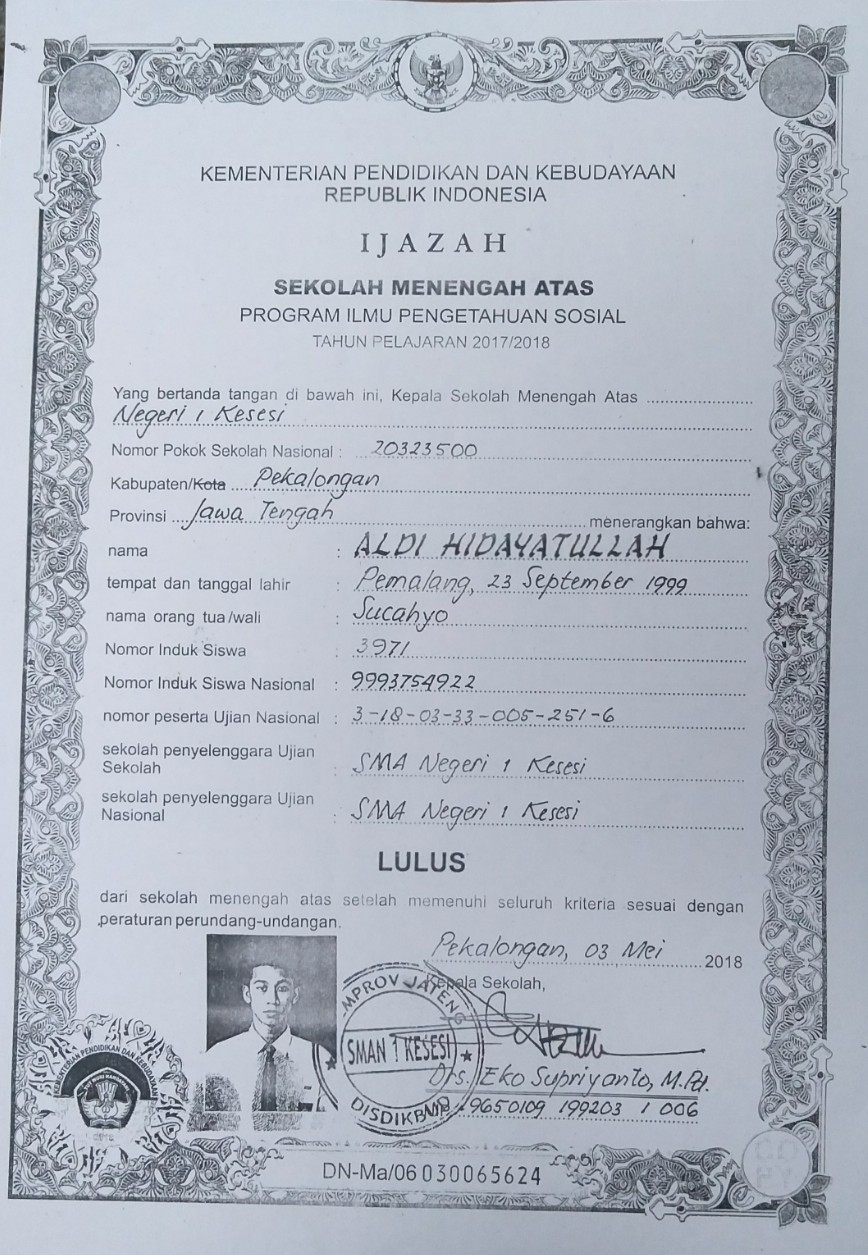 KEMENTERIAN PENDIDIKAN DAN KEBUDAYAAN
REPUBLIK INDONESIA
IJAZAH
SEKOLAH MENENGAH ATAS
PROGRAM ILMU PENGETAHUAN SOSIAL
TAHUN PELAJARAN 2017/2018
Yang bertanda tangan di bawah ini, Kepala Sekolah Menengah Atas
Negeri 1 Kesesi
Nomor Pokok Sekolah Nasional : 20323500
Kabupaten/Kota Pekalongan
Provinsi Jawa Tengah menerangkan bahwa:
nama : ALDI HIDAYATULLAH
tempat dan tanggal lahir : Pemalang, 23 September 1999
nama orang tua/wali : Sucahyo
Nomor Induk Siswa : 3971
Nomor Induk Siswa Nasional : 9993754922
nomor peserta Ujian Nasional : 3-18-03-33-005-251-6
sekolah penyelenggara Ujian
Sekolah : SMA Negeri 1 Kesesi
sekolah penyelenggara Ujian
Nasional : SMA Negeri 1 Kesesi
LULUS
dari sekolah menengah atas setelah memenuhi seluruh kriteria sesuai dengan
peraturan perundang-undangan.
Pekalongan, 03 Mei 2018
Kepala Sekolah,
MPROV JATENG
SMAN 1 KESESI
DISDIKBUD
Drs. Eko Supriyanto, M.Pd.
19650109 199203 1 006
KEMENTERIAN PENDIDIKAN DAN KEBUDAYAAN
TUT WURI HANDAYANI
DN-Ma/06 030065624